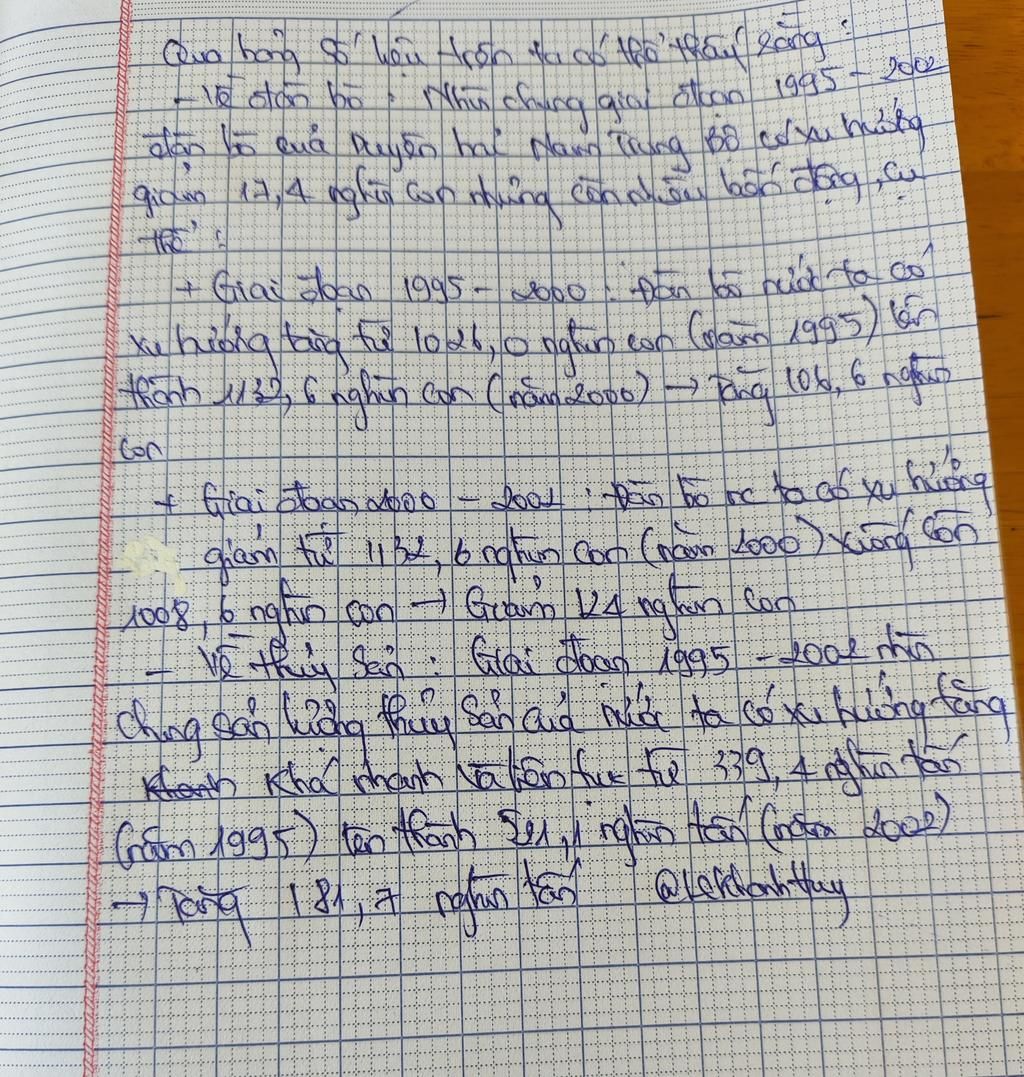 Qua bảng số liệu trên ta có thể thấy rằng :
- Về đàn bò : Nhìn chung giai đoạn 1995 - 2002
đàn bò của Duyên hải Nam Trung Bộ có xu hướng
giảm 17,4 nghìn con nhưng còn nhiều biến động, cụ
thể :
+ Giai đoạn 1995 - 2000 : Đàn bò nước ta có
xu hướng tăng từ 1026,0 nghìn con (năm 1995) lên
thành 1132,6 nghìn con (năm 2000) → Tăng 106,6 nghìn
con
+ Giai đoạn 2000 - 2002 : Đàn bò nc ta có xu hướng
giảm từ 1132,6 nghìn con (năm 2000) xuống còn
1008,6 nghìn con → Giảm 124 nghìn con
- Về thủy sản : Giai đoạn 1995 - 2002 nhìn
chung sản lượng thủy sản của nước ta có xu hướng tăng
khá nhanh và liên tục từ 339,4 nghìn tấn
(năm 1995) lên thành 521,1 nghìn tấn (năm 2002)
→ Tăng 181,7 nghìn tấn @lekhanhthuy